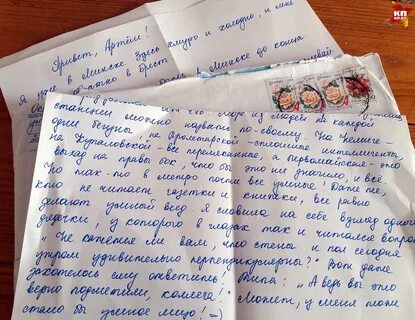 КП
KP.BY
Привет, Артём!
Я уже в Минске. Здесь хмуро и холодно, и мне
в Брест
в Минске до конца
море из людей на каждой
станции можно назвать по-своему. На
одни бегуны, на Пролетарской - сплошные интеллигенты,
на Купаловской - все перемешанные, а Первомайская - это
выход на правый бок, что бы это не значило, и всё.
Но так-то в метро почти все умные! Даже те,
кто не читает газетки и книжки, все равно
делают умный вид. Я словила на себе взгляд одного
дядечки, у которого в глазах так и читался вопрос
" Не кажется ли вам, что стена и пол сегодня
утром удивительно перпендикулярны?" Вот даже
захотелось ему ответить! Типа: "А ведь вы это
верно подметили, коллега!"
Может, у меня тоже
стало бы умное лицо! =)